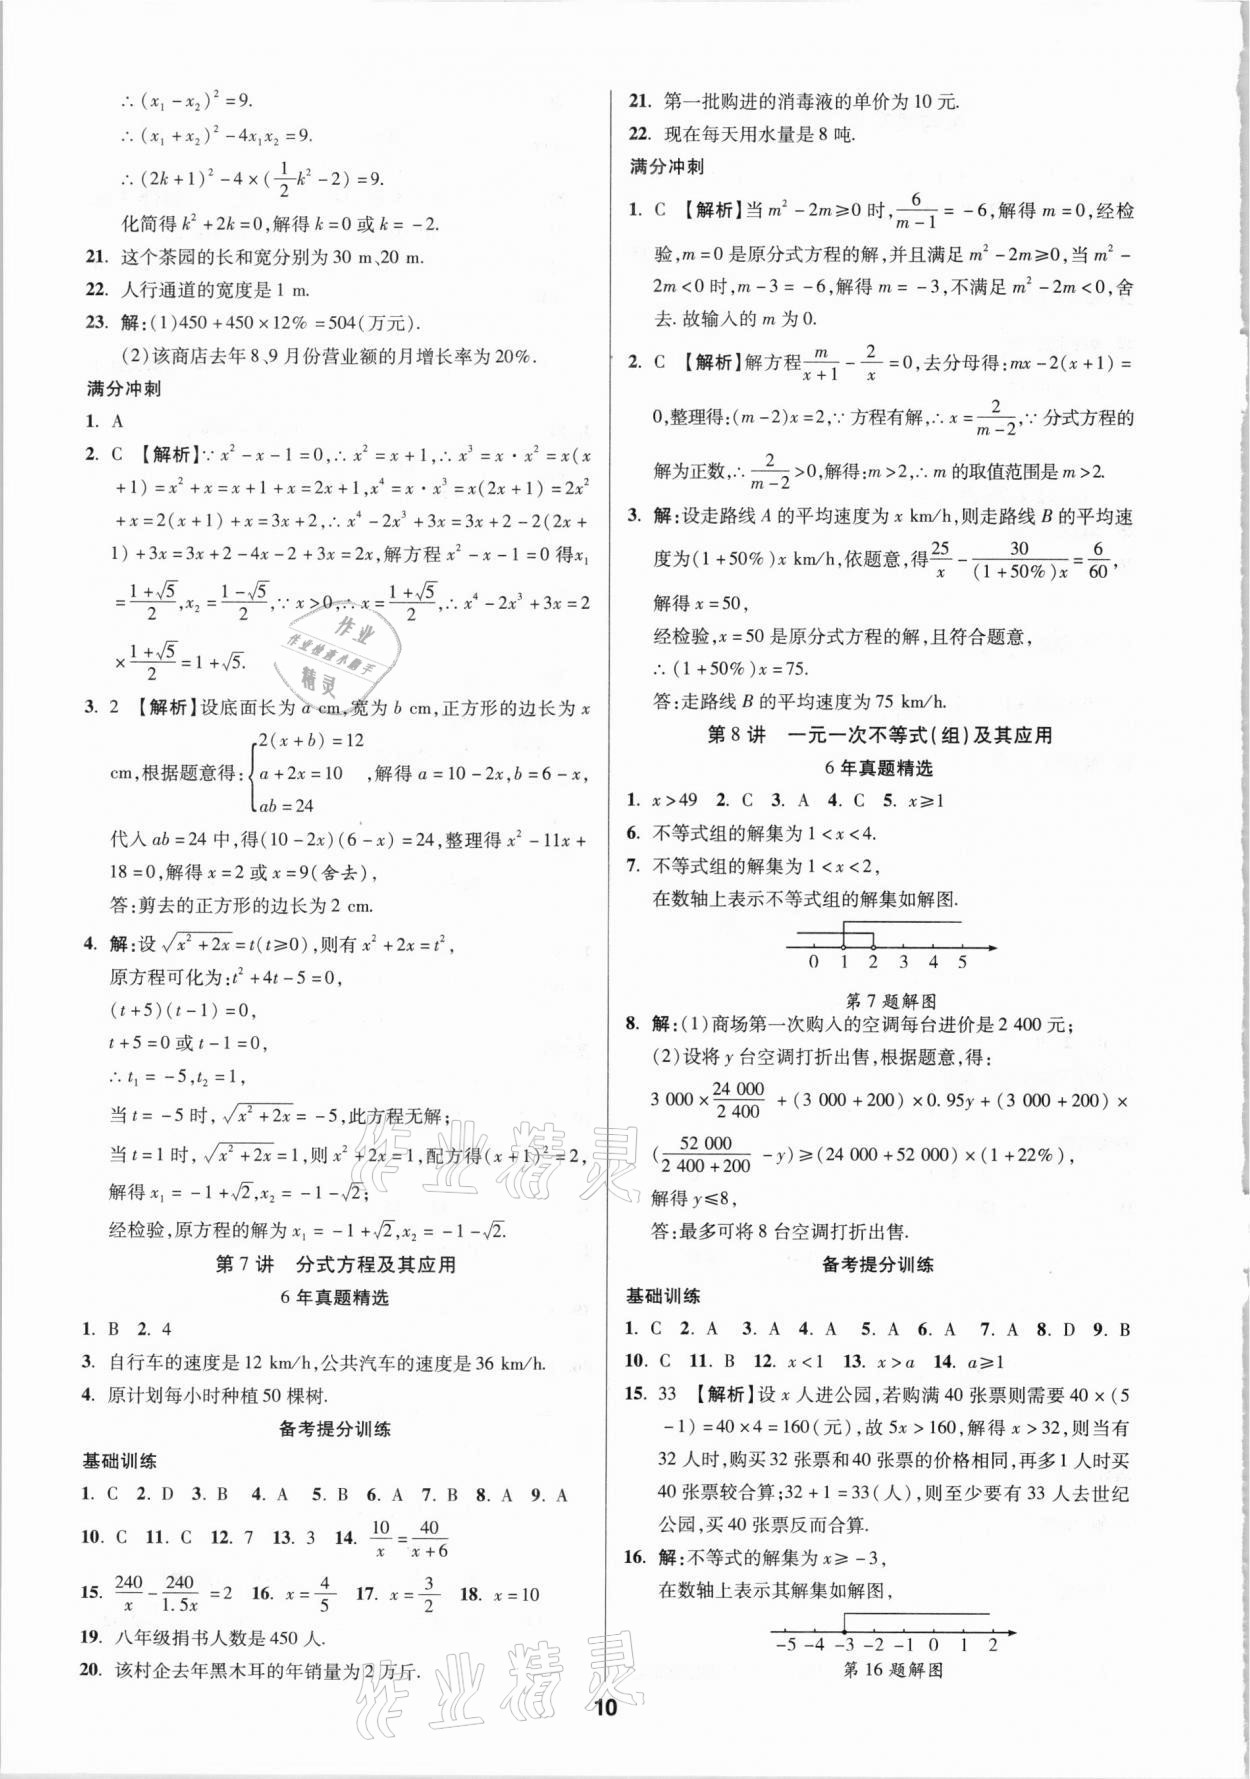 ∴(x₁-x₂)²=9.
∴(x₁+x₂)²-4x₁x₂=9.
∴(2k+1)²-4×(1/2k²-2)=9.
化简得k²+2k=0,解得k=0或k=-2.
21. 这个茶园的长和宽分别为30 m、20 m.
22. 人行通道的宽度是1 m.
23. 解:(1)450+450×12%=504(万元).
(2)该商店去年8、9月份营业额的月增长率为20%.
满分冲刺
1. A
2. C 【解析】∵x²-x-1=0,∴x²=x+1,∴x³=x·x²=x(x
+1)=x²+x=x+1+x=2x+1,x⁴=x·x³=x(2x+1)=2x²
+x=2(x+1)+x=3x+2,∴x⁴-2x³+3x=3x+2-2(2x+
1)+3x=3x+2-4x-2+3x=2x,解方程x²-x-1=0得x₁
=(1+√5)/2,x₂=(1-√5)/2,∵x>0,∴x=(1+√5)/2,∴x⁴-2x³+3x=2
×(1+√5)/2=1+√5.
3. 2 【解析】设底面长为a cm,宽为b cm,正方形的边长为x
cm,根据题意得:{2(x+b)=12
a+2x=10
ab=24
,解得a=10-2x,b=6-x,
代入ab=24中,得(10-2x)(6-x)=24,整理得x²-11x+
18=0,解得x=2或x=9(舍去),
答:剪去的正方形的边长为2 cm.
4. 解:设√(x²+2x)=t(t≥0),则有x²+2x=t²,
原方程可化为:t²+4t-5=0,
(t+5)(t-1)=0,
t+5=0或t-1=0,
∴t₁=-5,t₂=1,
当t=-5时,√(x²+2x)=-5,此方程无解;
当t=1时,√(x²+2x)=1,则x²+2x=1,配方得(x+1)²=2,
解得x₁=-1+√2,x₂=-1-√2;
经检验,原方程的解为x₁=-1+√2,x₂=-1-√2.
第7讲 分式方程及其应用
6年真题精选
1. B 2. 4
3. 自行车的速度是12 km/h,公共汽车的速度是36 km/h.
4. 原计划每小时种植50棵树.
备考提分训练
基础训练
1. C 2. D 3. B 4. A 5. B 6. A 7. B 8. A 9. A
10. C 11. C 12. 7 13. 3 14. 10/x=40/(x+6)
15. 240/x-240/1.5x=2 16. x=4/5 17. x=3/2 18. x=10
19. 八年级捐书人数是450人.
20. 该村企去年黑木耳的年销量为2万斤.
21. 第一批购进的消毒液的单价为10元.
22. 现在每天用水量是8吨.
满分冲刺
1. C 【解析】当m²-2m≥0时,6/(m-1)=-6,解得m=0,经检
验,m=0是原分式方程的解,并且满足m²-2m≥0,当m²-
2m<0时,m-3=-6,解得m=-3,不满足m²-2m<0,舍
去.故输入的m为0.
2. C 【解析】解方程m/(x+1)-2/x=0,去分母得:mx-2(x+1)=
0,整理得:(m-2)x=2,∵方程有解,∴x=2/(m-2),∵分式方程的
解为正数,∴2/(m-2)>0,解得:m>2,∴m的取值范围是m>2.
3. 解:设走路线A的平均速度为x km/h,则走路线B的平均速
度为(1+50%)x km/h,依题意,得25/x-30/((1+50%)x)=6/60,
解得x=50,
经检验,x=50是原分式方程的解,且符合题意,
∴(1+50%)x=75.
答:走路线B的平均速度为75 km/h.
第8讲 一元一次不等式(组)及其应用
6年真题精选
1. x>49 2. C 3. A 4. C 5. x≥1
6. 不等式组的解集为1<x<4.
7. 不等式组的解集为1<x<2,
在数轴上表示不等式组的解集如解图.
0 1 2 3 4 5
第7题解图
8. 解:(1)商场第一次购入的空调每台进价是2 400元;
(2)设将y台空调打折出售,根据题意,得:
3 000×24 000/2 400+(3 000+200)×0.95y+(3 000+200)×
(52 000/(2 400+200)-y)≥(24 000+52 000)×(1+22%),
解得y≤8,
答:最多可将8台空调打折出售.
备考提分训练
基础训练
1. C 2. A 3. A 4. A 5. A 6. A 7. A 8. D 9. B
10. C 11. B 12. x<1 13. x>a 14. a≥1
15. 33 【解析】设x人进公园,若购满40张票则需要40×(5
-1)=40×4=160(元),故5x>160,解得x>32,则当有
32人时,购买32张票和40张票的价格相同,再多1人时买
40张票较合算;32+1=33(人),则至少要有33人去世纪
公园,买40张票反而合算.
16. 解:不等式的解集为x≥-3,
在数轴上表示其解集如解图,
-5 -4 -3 -2 -1 0 1 2
第16题解图
10
作业
作业检查小助手
精灵
作业精灵
作业精灵